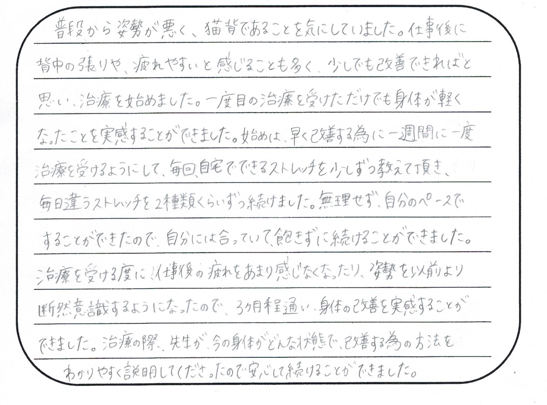 普段から姿勢が悪く、猫背であることを気にしていました。仕事後に
背中の張りや、疲れやすいと感じることも多く、少しでも改善できればと
思い、治療を始めました。一度目の治療を受けただけでも身体が軽く
なったことを実感することができました。始めは、早く改善する為に一週間に一度
治療を受けるようにして、毎回、自宅でできるストレッチを少しずつ教えて頂き、
毎日違うストレッチを2種類くらいずつ続けました。無理せず、自分のペースで
することができたので、自分には合っていて、飽きずに続けることができました。
治療を受ける度に、仕事後の疲れをあまり感じなくなったり、姿勢を以前より
断然意識するようになったので、3ヶ月程通い、身体の改善を実感することが
できました。治療の際、先生が、今の身体がどんな状態で、改善する為の方法を
わかりやすく説明してくださったので安心して続けることができました。